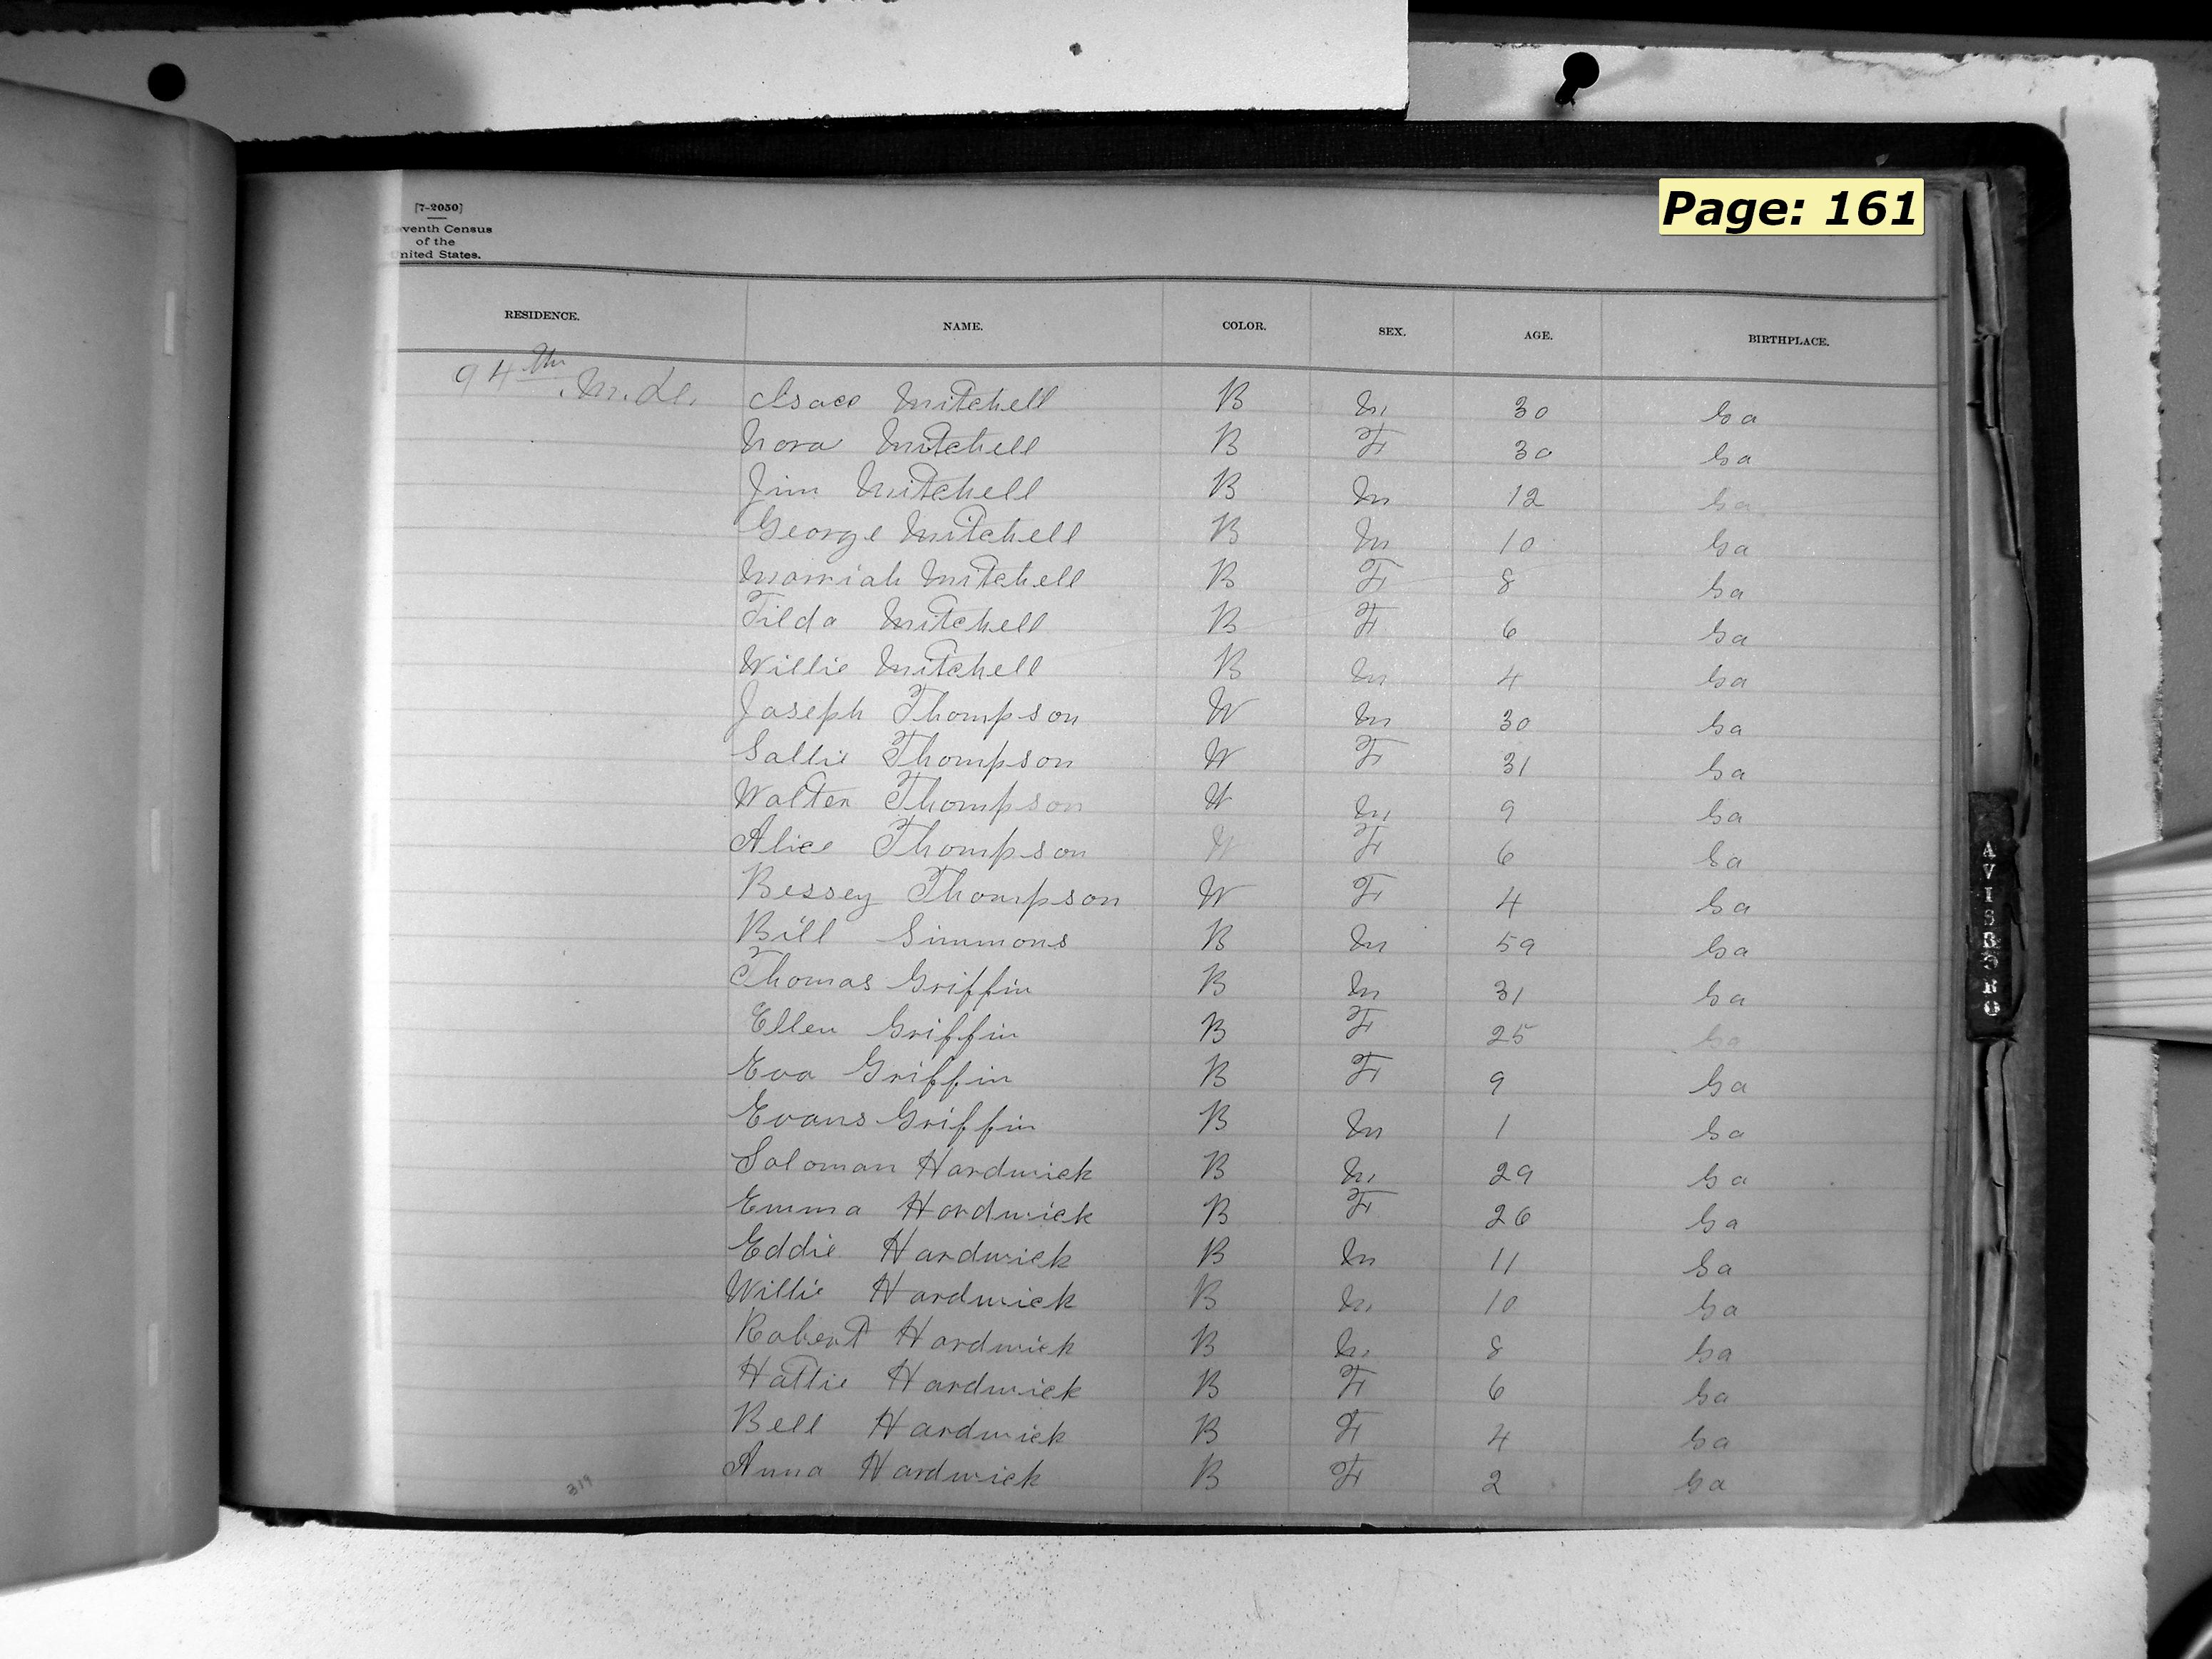 Page: 161
[7-2050]
Eleventh Census
of the
United States.
RESIDENCE. NAME. COLOR. SEX. AGE. BIRTHPLACE.
94th M. D. Isace Mitchell B M 30 Ga
Nora Mitchell B F 30 Ga
Jim Mitchell B M 12 Ga
George Mitchell B M 10 Ga
Marriah Mitchell B F 8 Ga
Tilda Mitchell B F 6 Ga
Willie Mitchell B M 4 Ga
Joseph Thompson W M 30 Ga
Sallie Thompson W F 31 Ga
Walter Thompson W M 9 Ga
Alice Thompson W F 6 Ga
Bessey Thompson W F 4 Ga
Bill Simmons B M 59 Ga
Thomas Griffin B M 31 Ga
Ellen Griffin B F 25 Ga
Eva Griffin B F 9 Ga
Evans Griffin B M 1 Ga
Soloman Hardwick B M 29 Ga
Emma Hardwick B F 26 Ga
Eddie Hardwick B M 11 Ga
Willie Hardwick B M 10 Ga
Robert Hardwick B M 8 Ga
Hattie Hardwick B F 6 Ga
Bell Hardwick B F 4 Ga
Anna Hardwick B F 2 Ga
319